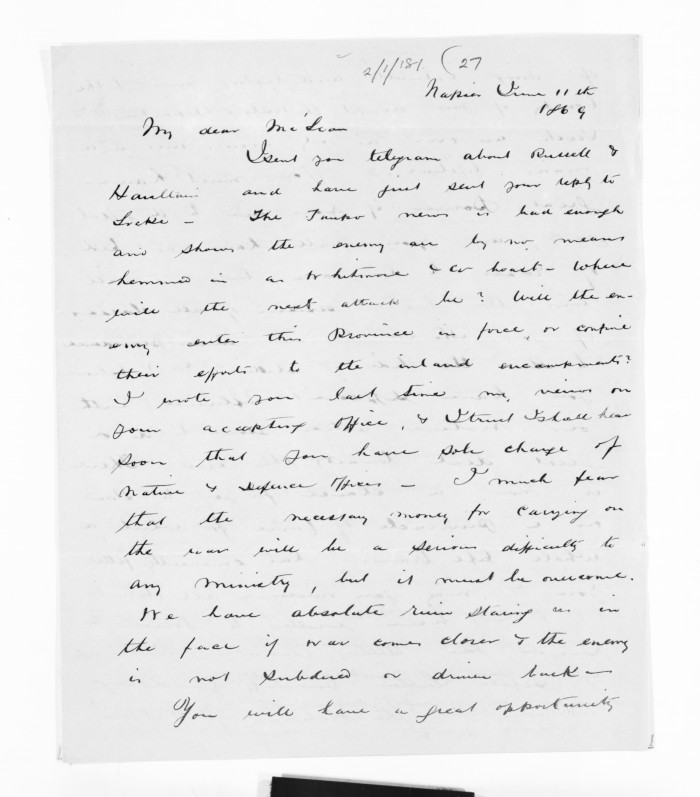 2/1/181. (27
Napier June 11th
1869
My dear McLean
I sent you telegram about Russell &
Haultain and have just sent your reply to
Locke - The Taupo news is bad enough
and shows the enemy are by no means
hemmed in as Whitmore & Co boast - Where
will the next attack be? Will the en-
emy enter this Province in force, or confine
their efforts to the inland encampments?
I wrote you last time my views on
your accepting office, & I trust I shall hear
soon that you have sole charge of
Native & Defence Offices - I much fear
that the necessary money for carrying on
the war will be a serious difficulty to
any Ministry, but it must be overcome.
We have absolute ruin staring us in
the face if war comes closer & the enemy
is not subdued or driven back -
You will have a great opportunity